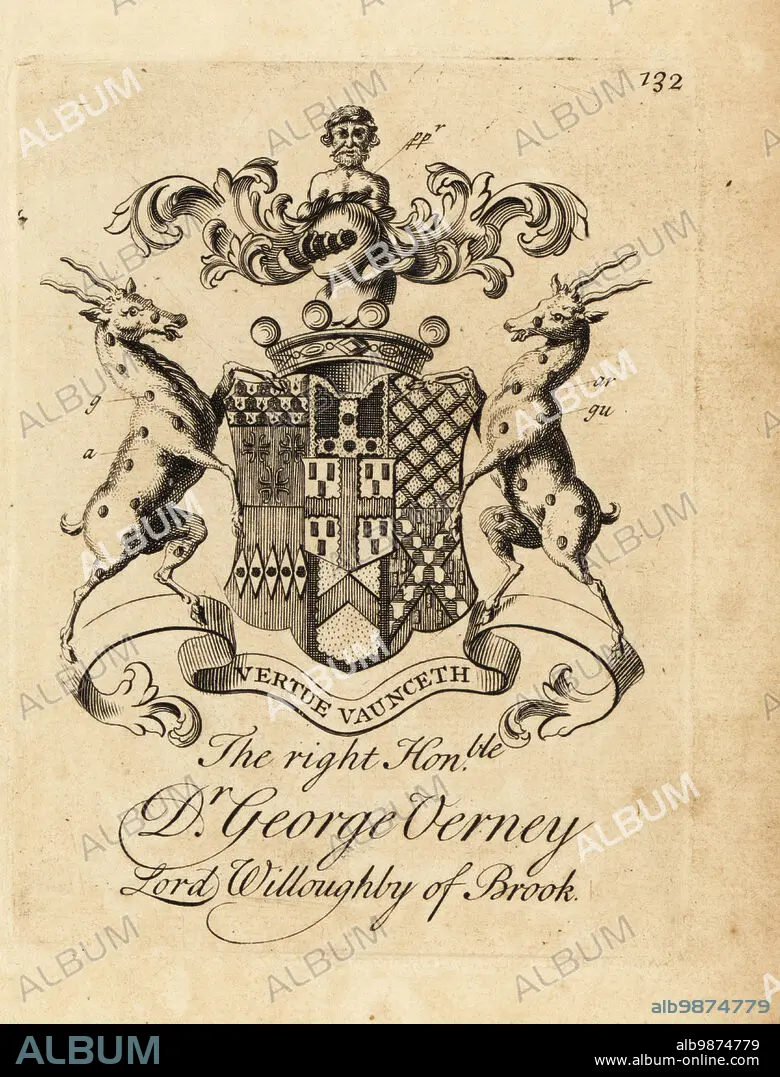 132
pp^r
g
a
ar
gu
VERTUE VAUNCETH
The right Hon.ble
D.r George Verney
Lord Willoughby of Brook.
alb9874779
ALBUM
alb9874779
www.album-online.com